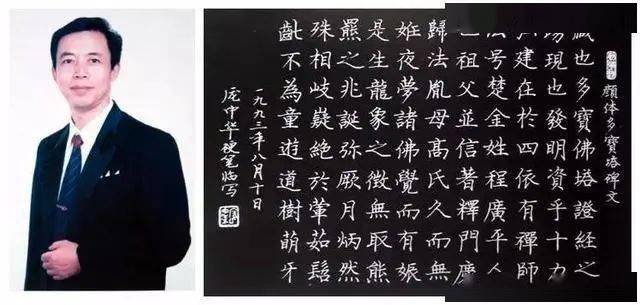 顏体多寶塔碑文
藏也多寶佛塔證經之
踴現也發明資乎十力
建在於四依有禪師
法号楚金姓程廣平人
祖父並信著釋門慶
歸法胤母高氏久而無
姙夜夢諸佛覺而有娠
是生龍象之徵無取熊
羆之兆誕弥厥月炳然
殊相岐嶷絕於葷茹髫
齔不為童遊道樹萌牙
一九九三年八月十日
庞中华硬笔临写